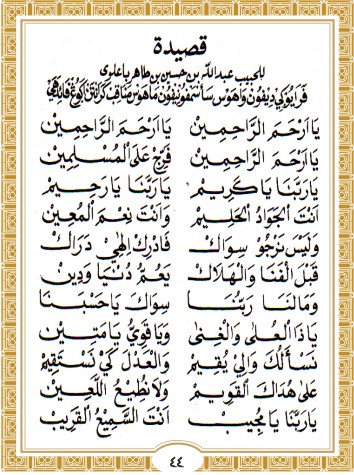 قصيدة
للحبيب عبد الله بن حسين بن طاهر باعلوي
يا ارحم الراحمين يا ارحم الراحمين
يا ارحم الراحمين فرج على المسلمين
يا ربنا يا كريم يا ربنا يا رحيم
انت الجواد الحليم وانت نعم المعين
وليس نرجو سواك فادرك الهي دراك
قبل الفنا والهلاك يعم دنيا ودين
وما لنا ربنا سواك يا حسبنا
يا ذا العلى والغنى ويا قوي يا متين
نسألك والي يقيم والعدل كي نستقيم
على هداك القويم ولا نطيع اللعين
يا ربنا يا مجيب انت السميع القريب
٤٤